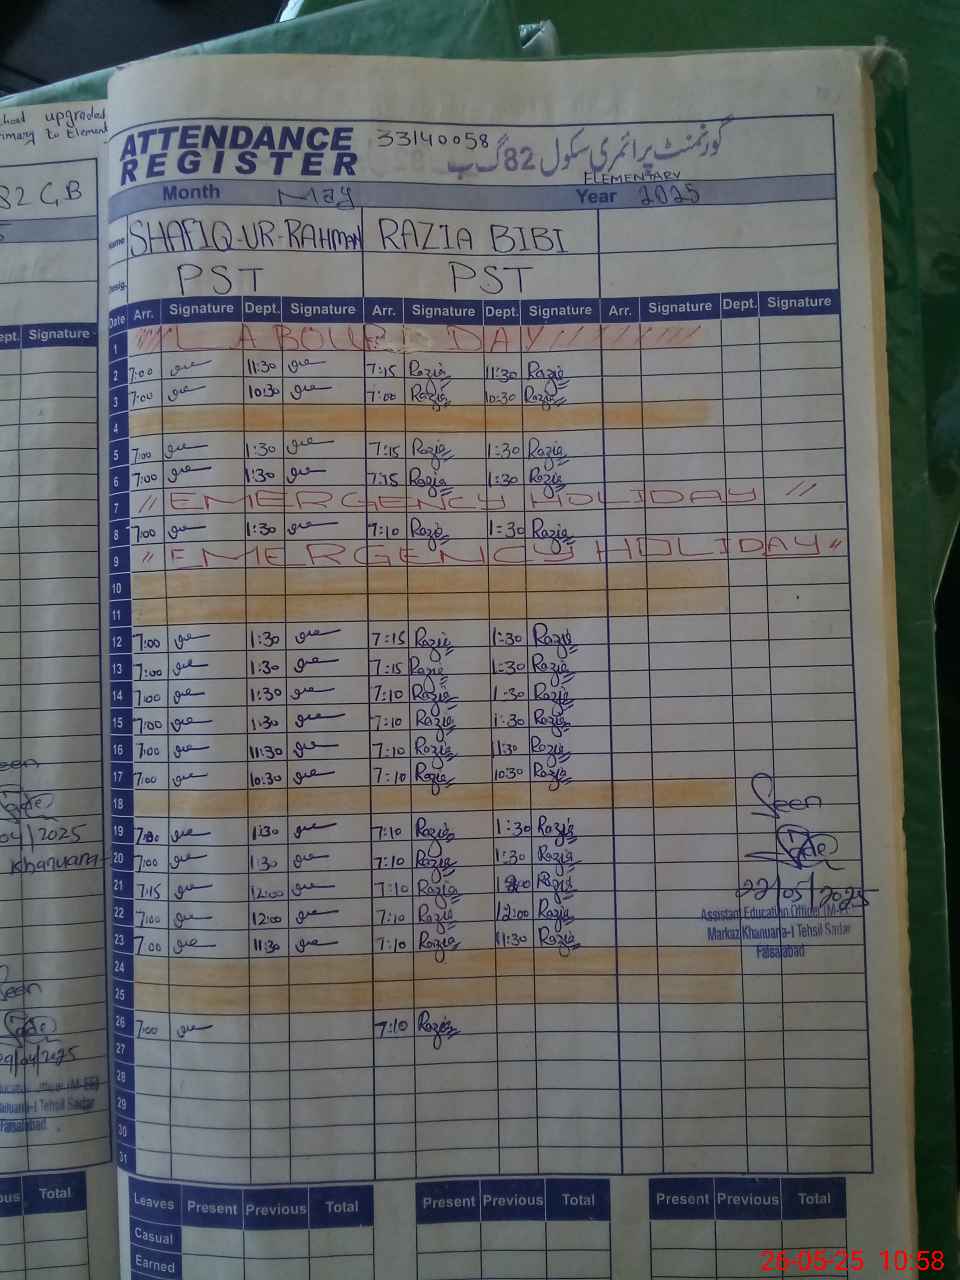 upgraded
to Element
82 G B
ATTENDANCE REGISTER
33140058
گورنمنٹ پرائمری سکول 82 گ ب
ELEMENTARY
Month May Year 2025
Name SHAFIQ-UR-RAHMAN RAZIA BIBI
Desig. PST PST
Date Arr. Signature Dept. Signature Arr. Signature Dept. Signature Arr. Signature Dept. Signature
1 LABOUR DAY
2 7:00 11:30 7:15 Razia 11:30 Razia
3 7:00 10:30 7:00 Razia 10:30 Razia
4
5 7:00 1:30 7:15 Razia 1:30 Razia
6 7:00 1:30 7:15 Razia 1:30 Razia
7 " EMERGENCY HOLIDAY "
8 7:00 1:30 7:10 Razia 1:30 Razia
9 " EMERGENCY HOLIDAY "
10
11
12 7:00 1:30 7:15 Razia 1:30 Razia
13 7:00 1:30 7:15 Razia 1:30 Razia
14 7:00 1:30 7:10 Razia 1:30 Razia
15 7:00 1:30 7:10 Razia 1:30 Razia
16 7:00 11:30 7:10 Razia 11:30 Razia
17 7:00 10:30 7:10 Razia 10:30 Razia
18
19 7:00 1:30 7:10 Razia 1:30 Razia
20 7:00 1:30 7:10 Razia 1:30 Razia
21 7:15 12:00 7:10 Razia Razia
22 7:00 12:00 7:10 Razia 12:00 Razia
23 7:00 11:30 7:10 Razia 11:30 Razia
24
25
26 7:00 7:10 Razia
27
28
29
30
31
Seen
22/05/2025
Assistant Education Officer (M-EE)
Markaz Khanuana-I Tehsil Sadar
Faisalabad
Leaves Present Previous Total Present Previous Total Present Previous Total
Casual
Earned
Signature
04/2025
Khanuana-
Seen
29/04/2025
Tehsil Sadar
Faisalabad
Total
26-05-25 10:58